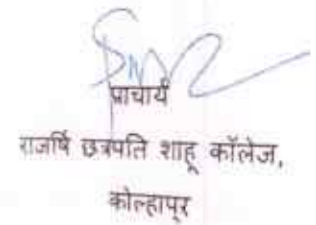 प्राचार्य
राजर्षि छत्रपति शाहू कॉलेज,
कोल्हापूर